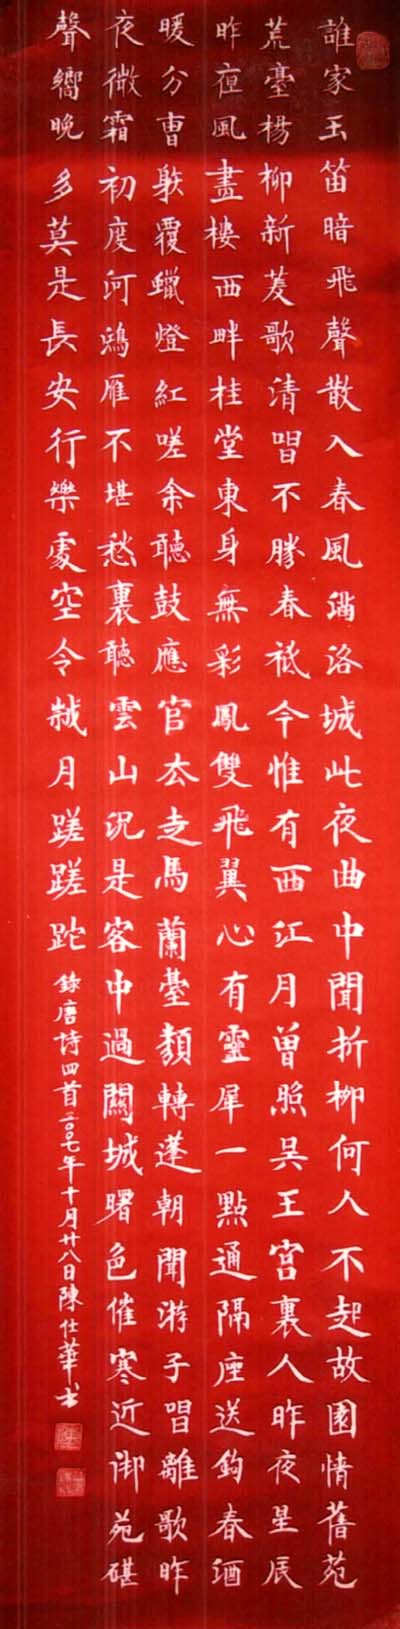 誰家玉笛暗飛聲散入春風滿洛城此夜曲中聞折柳何人不起故園情舊苑
荒臺楊柳新菱歌清唱不勝春祗今惟有西江月曾照吳王宮裏人昨夜星辰
昨夜風畫樓西畔桂堂東身無彩鳳雙飛翼心有靈犀一點通隔座送鉤春酒
暖分曹射覆蠟燈紅嗟余聽鼓應官去走馬蘭臺類轉蓬朝聞游子唱離歌昨
夜微霜初度河鴻雁不堪愁裏聽雲山況是客中過關城曙色催寒近御苑碪
聲嚮晚多莫是長安行樂處空令歲月蹉蹉跎
錄唐詩四首二〇〇七年十月廿八日陳仕華书